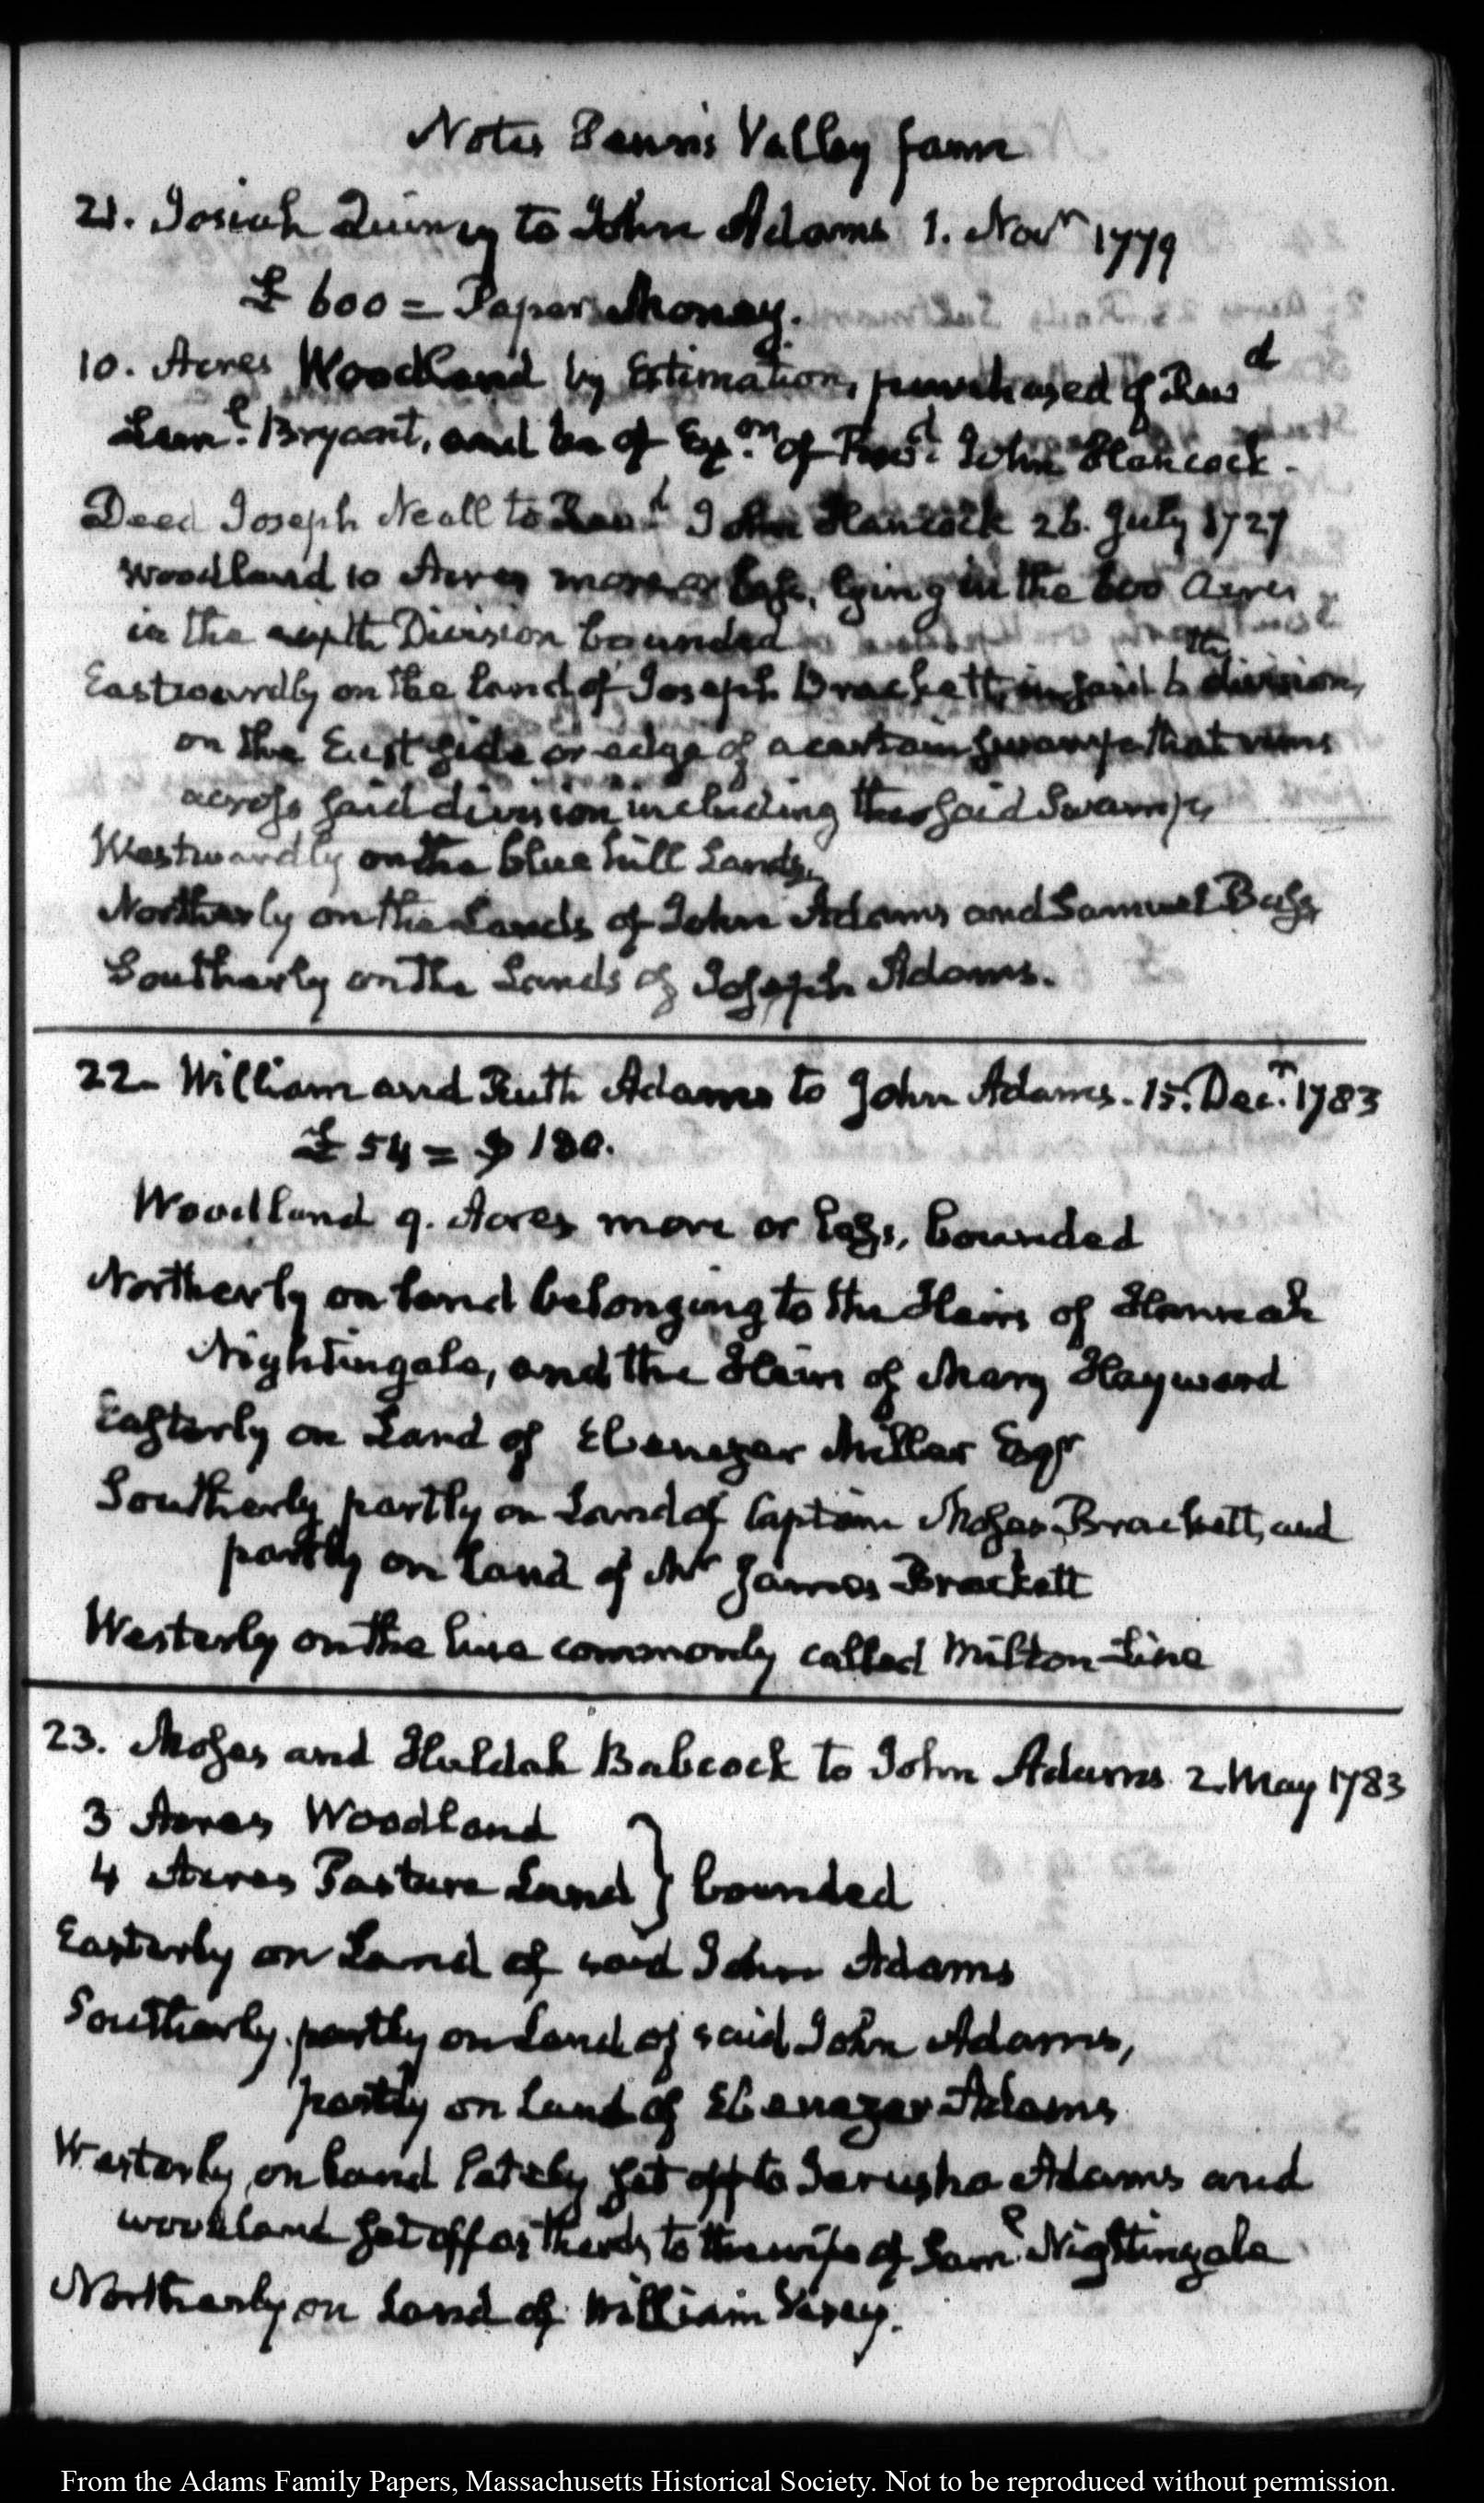 Notes Penn's Valley farm
21. Josiah Quincy to John Adams 1. Novr 1779
£ 600 = Paper Money.
10. Acres Woodland by Estimation, purchased of Revd
Leml. Bryant, and he of Exon. of Revd. John Hancock.
Deed Joseph Neall to Revd. John Hancock 26. July 1727
Woodland 10 Acres more or less, lying in the 600 Acres
in the sixth Division bounded
Eastwardly on the land of Joseph Brackett, in said 6th division,
on the East side or edge of a certain swamp that runs
across said division including the said Swamp,
Westwardly on the blue hill Lands,
Northerly on the Lands of John Adams and Samuel Bass
Southerly on the Lands of Joseph Adams.
22 William and Ruth Adams to John Adams. 15. Decr. 1783
£ 54 = $ 180.
Woodland 9. Acres more or less, bounded
Northerly on land belonging to the Heirs of Hannah
Nightingale, and the Heirs of Mary Hayward
Easterly on Land of Ebenezer Miller Esqr
Southerly partly on Land of Captain Moses Brackett, and
partly on land of Mr James Brackett
Westerly on the line commonly called Milton Line
23. Moses and Huldah Babcock to John Adams 2. May 1783
3 Acres Woodland
4 Acres Pasture Land } bounded
Easterly on Land of said John Adams
Southerly partly on Land of said John Adams,
partly on land of Ebenezer Adams
Westerly on land lately set off to Jerusha Adams and
woodland set off as thirds to the wife of Saml. Nightingale
Northerly on Land of William Vesey.
From the Adams Family Papers, Massachusetts Historical Society. Not to be reproduced without permission.